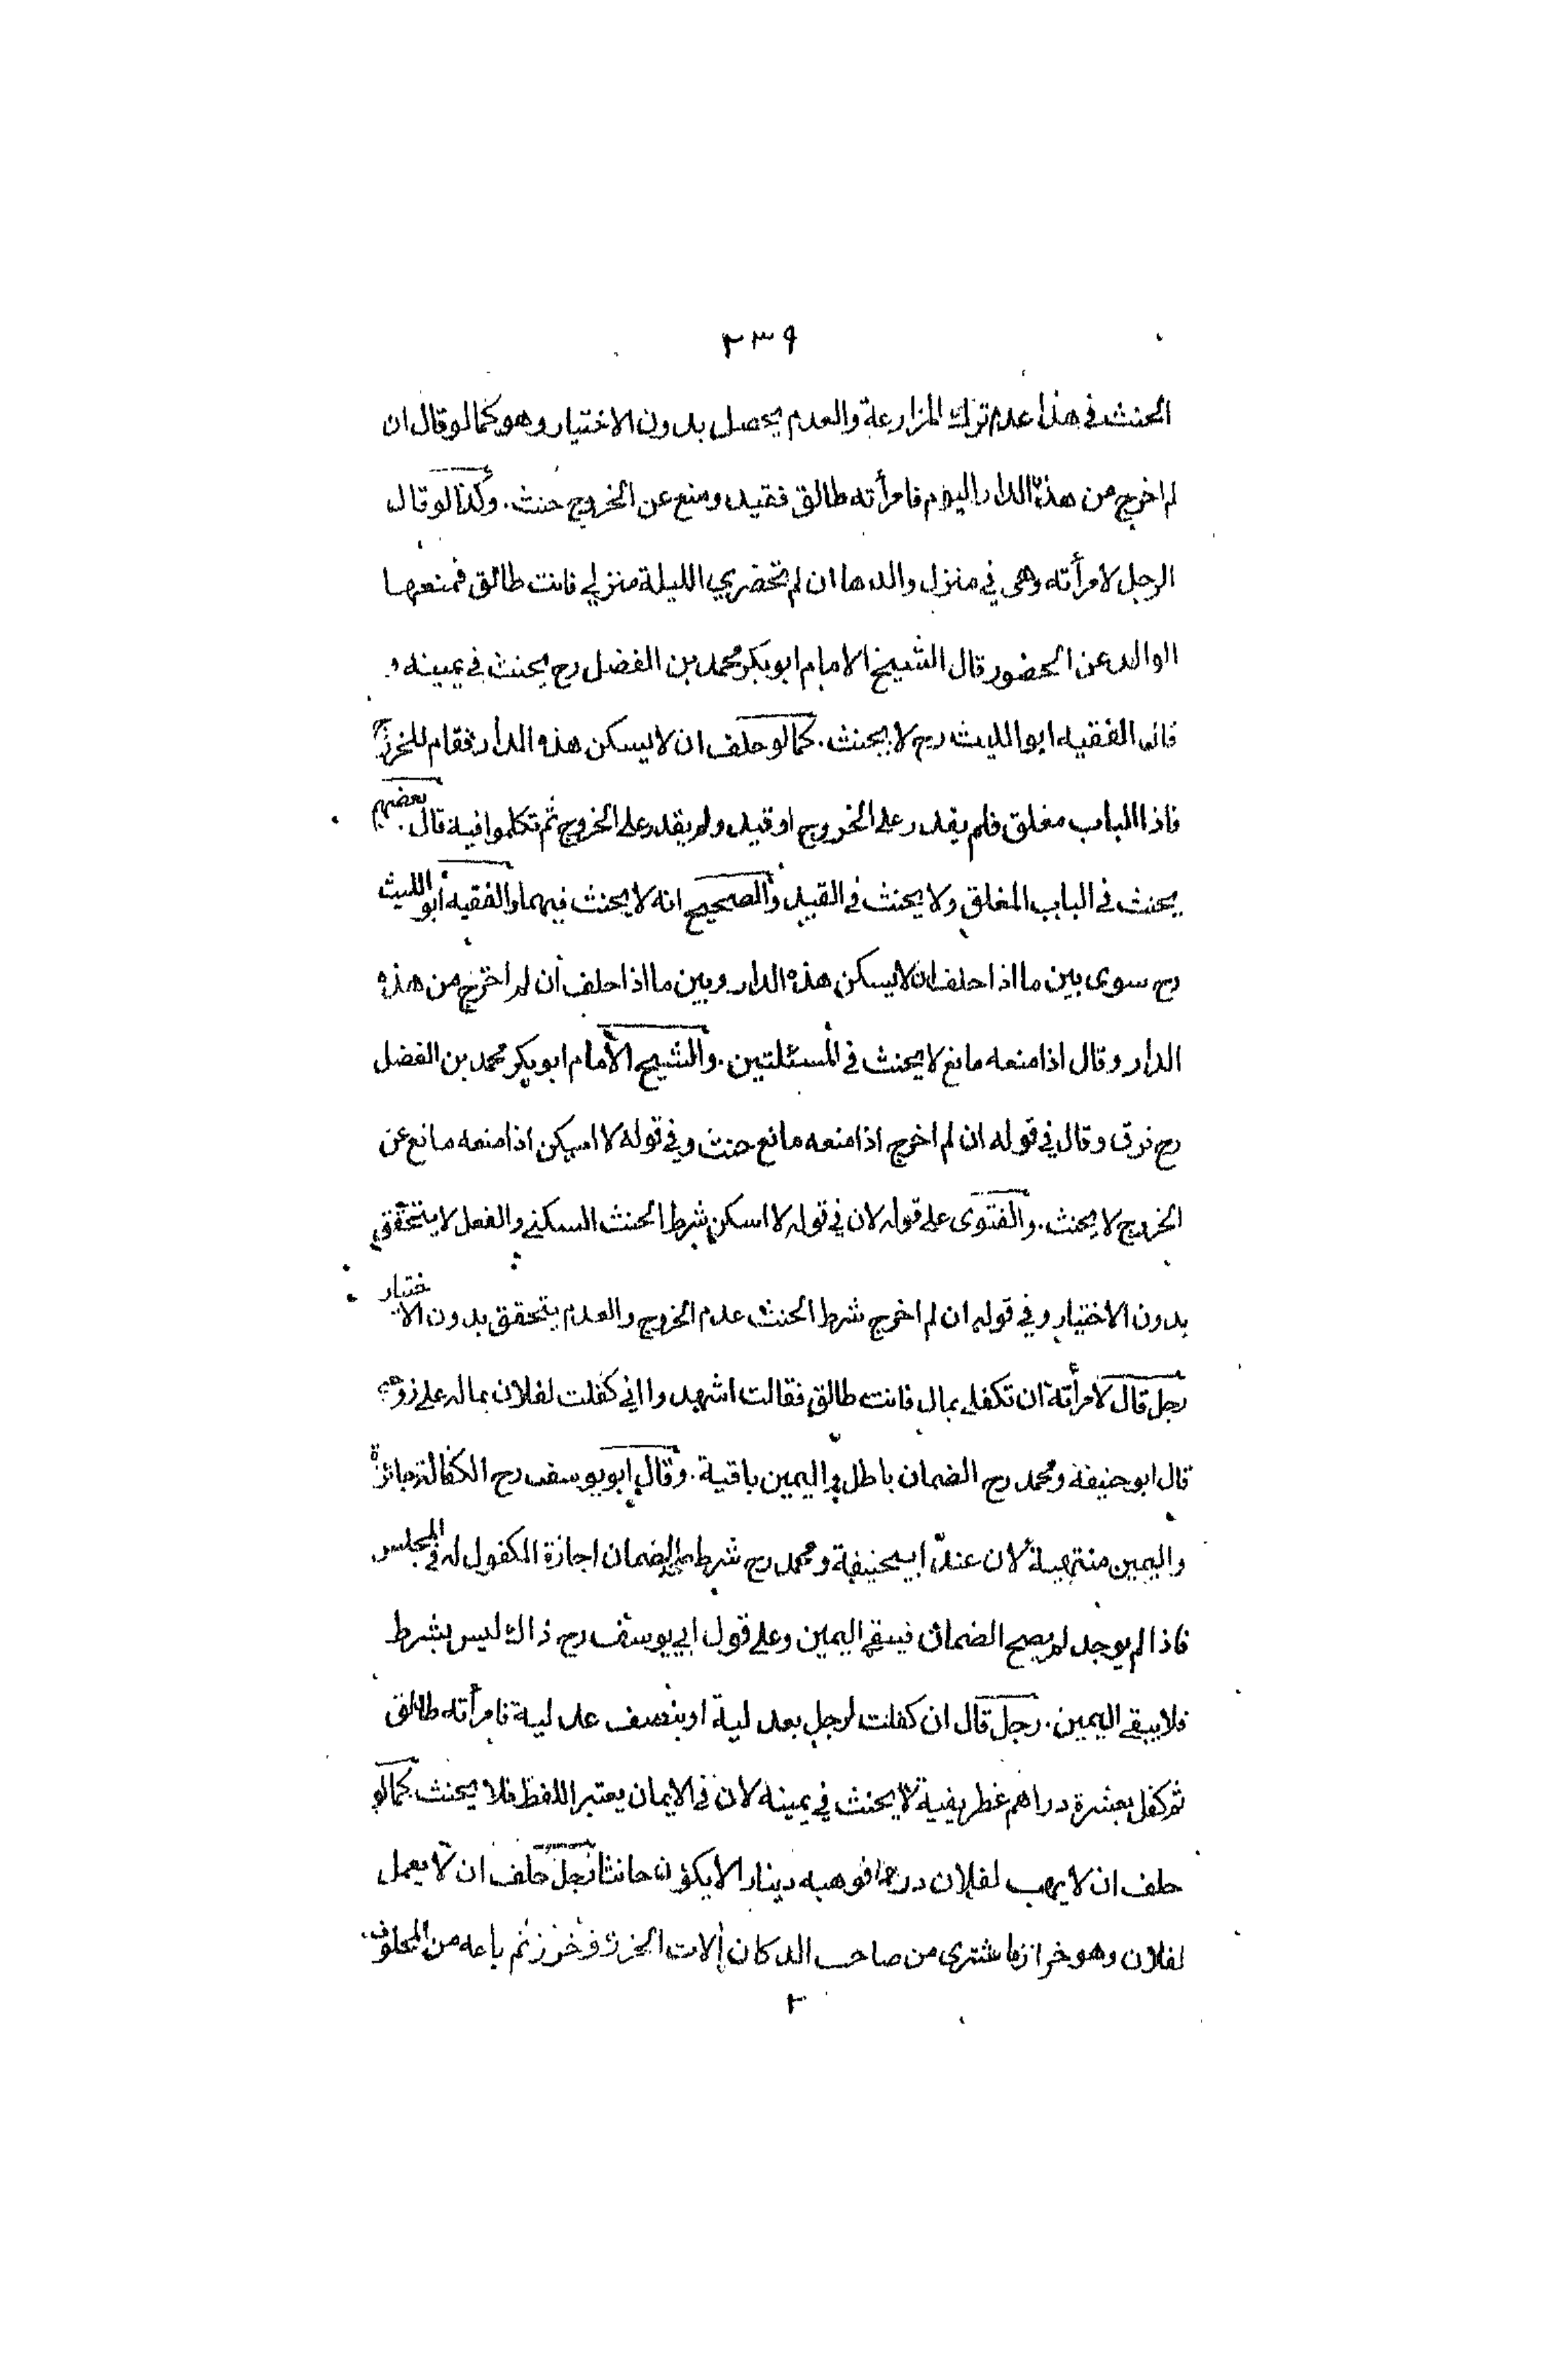 ٢٣٩
الحنث في هذا عدم ترك المزارعة والعدم يحصل بدون الاختيار وهو كما لو قال ان
لم اخرج من هذه الدار اليوم فامرأته طالق فقيد ومنع عن الخروج حنث. وكذا لو قال
الرجل لامرأته وهي في منزل والدها ان لم تحضري الليلة منزلي فانت طالق فمنعها
الوالد عن الحضور قال الشيخ الامام ابوبكر محمد بن الفضل رح يحنث في يمينه و
قال الفقيه ابوالليث رح لا يحنث. كما لو حلف ان لا يسكن هذه الدار فقام للخروج
فاذا الباب مغلق فلم يقدر على الخروج او قيد ولم يقدر على الخروج ثم تكلموا فيه قال بعضهم
يحنث في الباب المغلق ولا يحنث في القيد والصحيح انه لا يحنث فيهما والفقيه ابوالليث
رح سوى بين ما اذا حلف ان لا يسكن هذه الدار وبين ما اذا حلف ان لم اخرج من هذه
الدار وقال اذا منعه مانع لا يحنث في المسئلتين. والشيخ الامام ابوبكر محمد بن الفضل
رح فرق وقال في قوله ان لم اخرج اذا منعه مانع حنث وفي قوله لا اسكن اذا منعه مانع عن
الخروج لا يحنث. والفتوى على قوله لان في قوله لا اسكن شرط الحنث السكنى والفعل لا يتحقق
بدون الاختيار وفي قوله ان لم اخرج شرط الحنث عدم الخروج والعدم يتحقق بدون الاختيار
رجل قال لامرأته ان تكفلي بمال فانت طالق فقالت اشهدوا اني كفلت لفلان بماله على زوجي
قال ابوحنيفة ومحمد رح الضمان باطل واليمين باقية. وقال ابويوسف رح الكفالة جائزة
واليمين منتهية لان عند ابيحنيفة ومحمد رح شرط الضمان اجازة المكفول له في المجلس
فاذا لم يوجد لم يصح الضمان فيبقى اليمين وعلى قول ابي يوسف رح ذاك ليس بشرط
فلا يبقى اليمين. رجل قال ان كفلت لرجل بعدلية او بنصف عدلية فامرأته طالق
ثم كفل بعشرة دراهم غطريفية لا يحنث في يمينه لان في الايمان يعتبر اللفظ فلا يحنث كما لو
حلف ان لا يهب لفلان درهما فوهبه دينارا لا يكون حانثا رجل حلف ان لا يعمل
لفلان وهو خراز فاشترى من صاحب الدكان آلات الخرز فخرز ثم باعه من المحلوف
٢